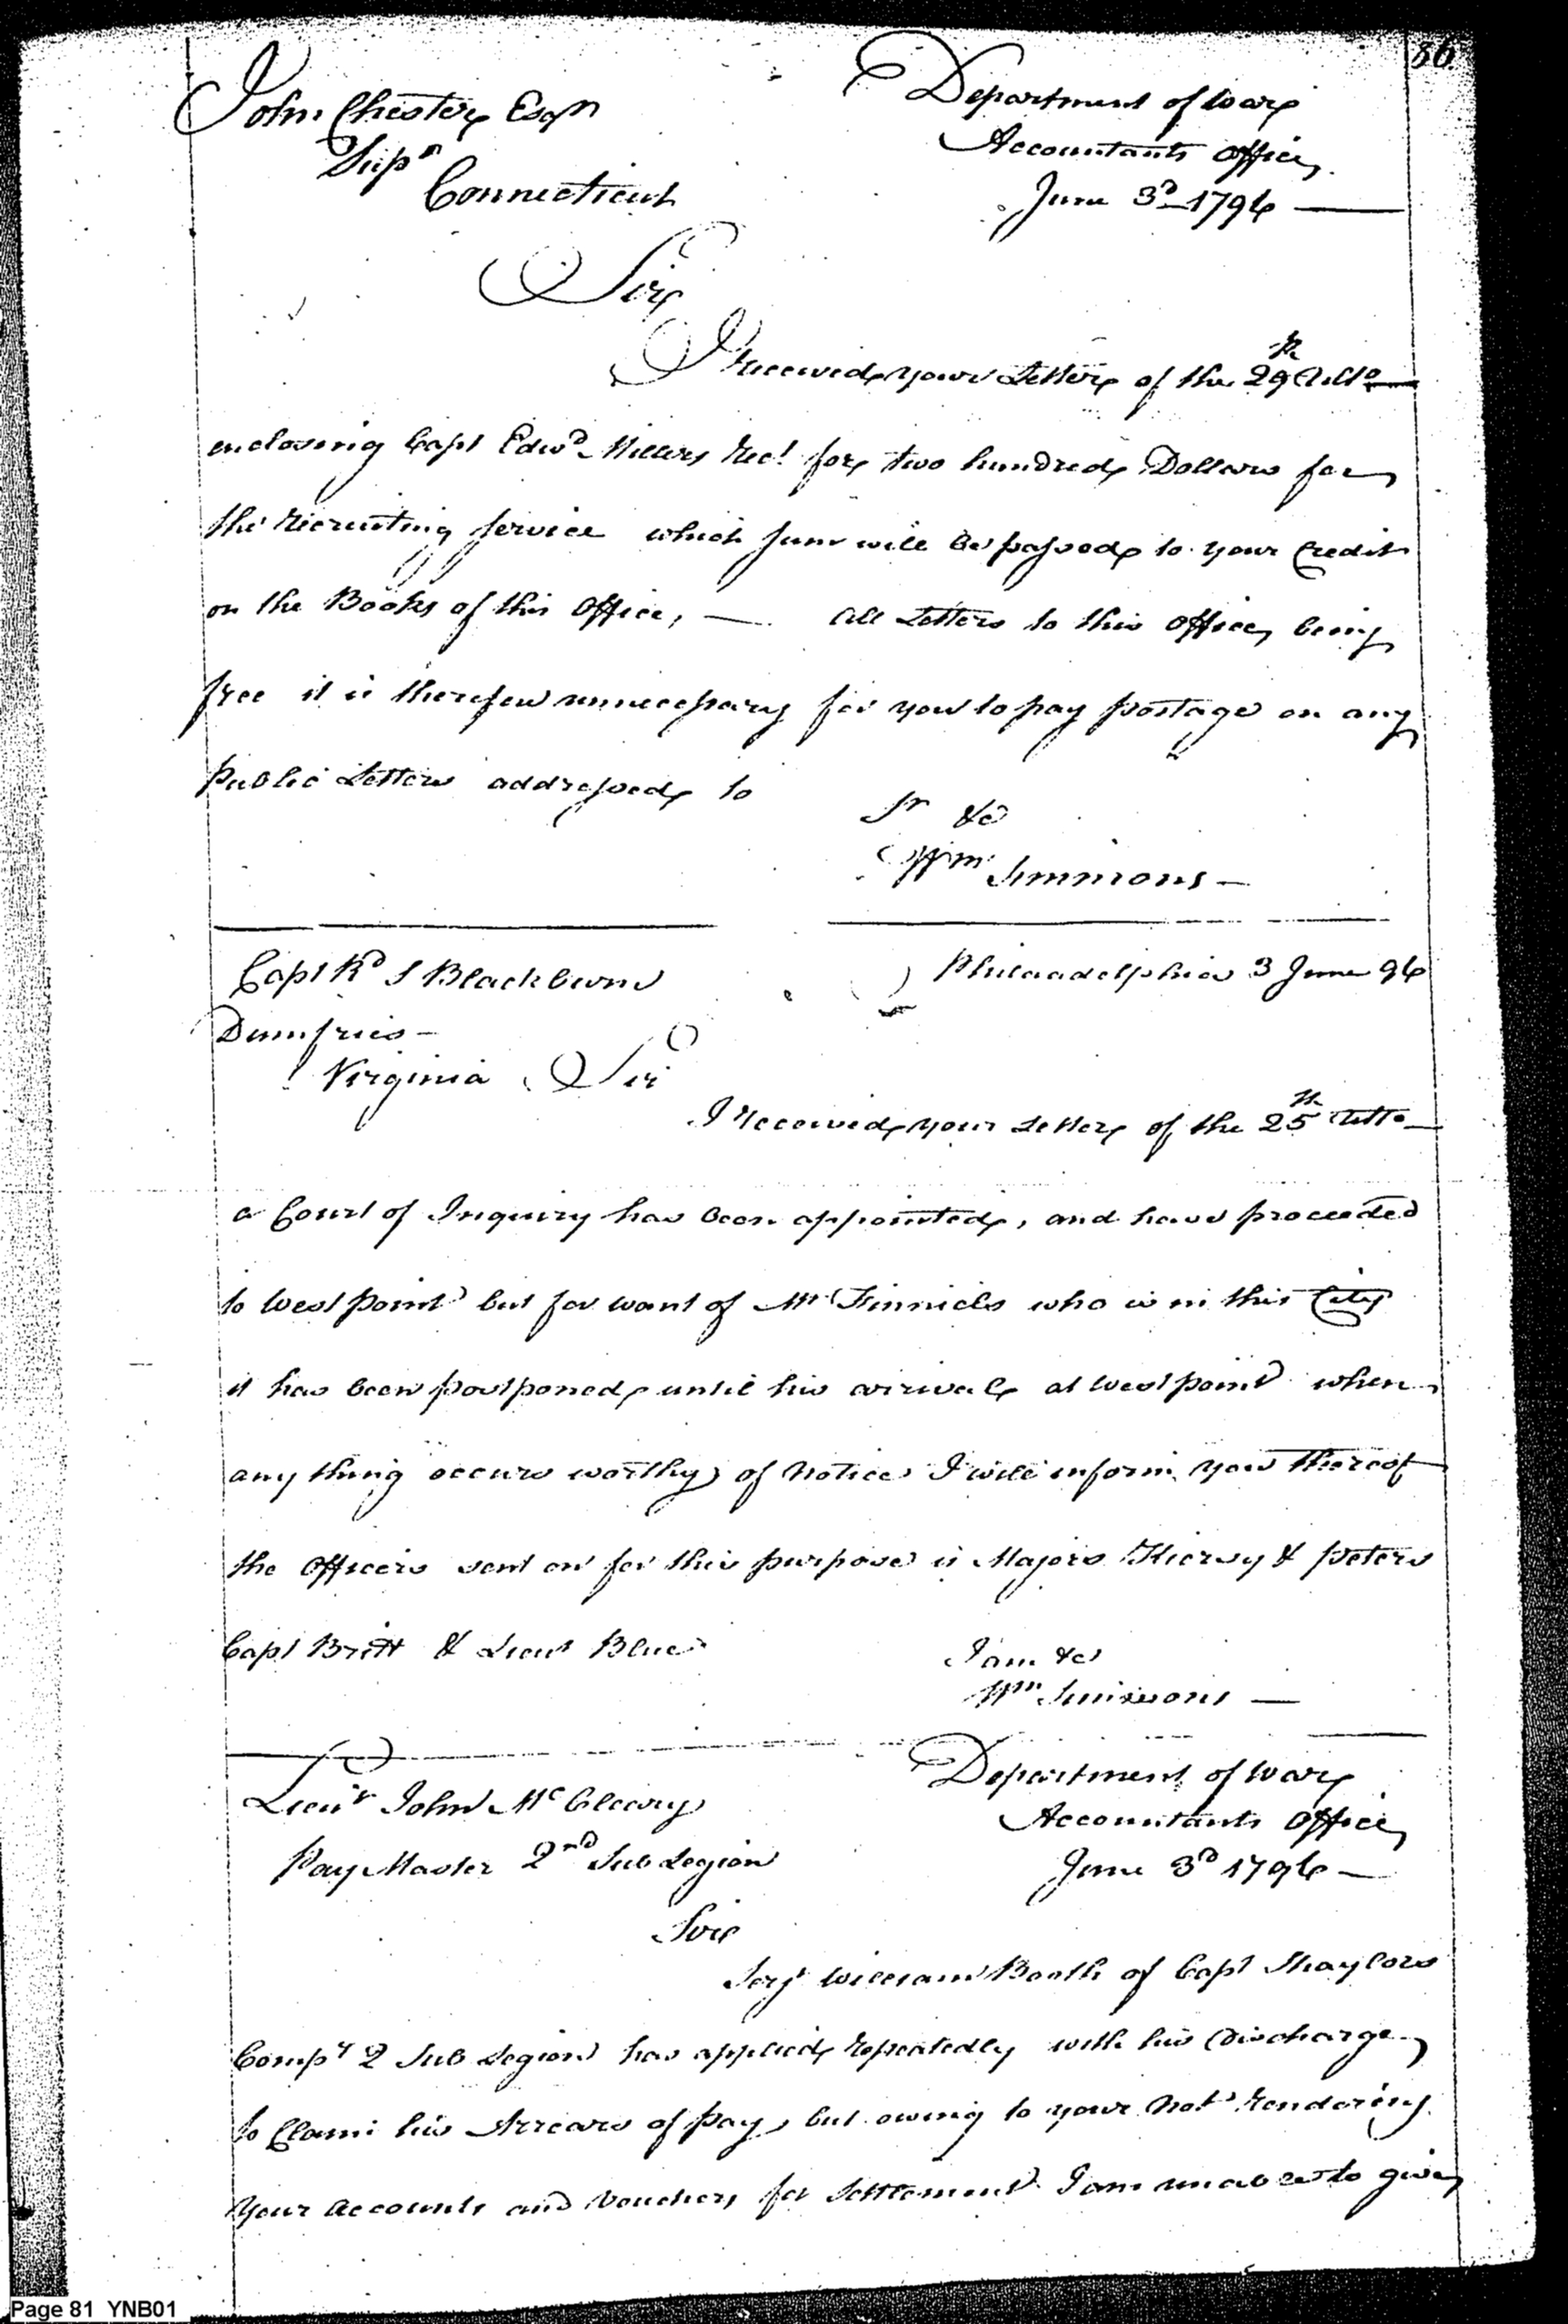 86
John Chester Esqr
Supr
Connecticut
Department of War
Accountants Office
June 3d 1796 —
Sir
I received your Letter of the 29th Ulto —
enclosing Capt Edwd Millers Rect for two hundred Dollars for
the recruiting service which sum will be passed to your Credit
on the Books of this Office, — All Letters to this Office being
free it is therefore unnecessary for you to pay postage on any
public Letters addressed to
Sr &c
Wm Simmons —
Capt Rd S Blackburn
Dumfries —
Virginia Sir
Philaadelphia 3 June 96
I received your Letter of the 25th Ulto —
a Court of Inquiry has been appointed, and have proceeded
to West point but for want of Mr Finniels who is in this City
it has been postponed until his arrival at West point when
any thing occurs worthy of notice I will inform you thereof
the Officers sent on for this purpose is Majors Kiersy & Peters
Capt Britt & Lieut Blue
I am &c
Wm Simmons —
Lieut John McCleary
Pay Master 2nd Sub Legion
Department of War
Accountants Office
June 3d 1796 —
Sir
Serjt William Booth of Capt Shaylors
Compy 2 Sub Legion has applied repeatedly with his Discharge
to Claim his Arrears of pay, but owing to your not rendering
your accounts and vouchers for settlement I am unable to give
Page 81 YNB01